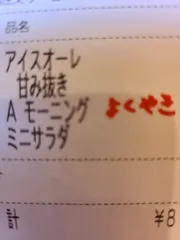 品名
アイスオーレ
甘み抜き
A モーニング よくやき
ミニサラダ
計 ¥8